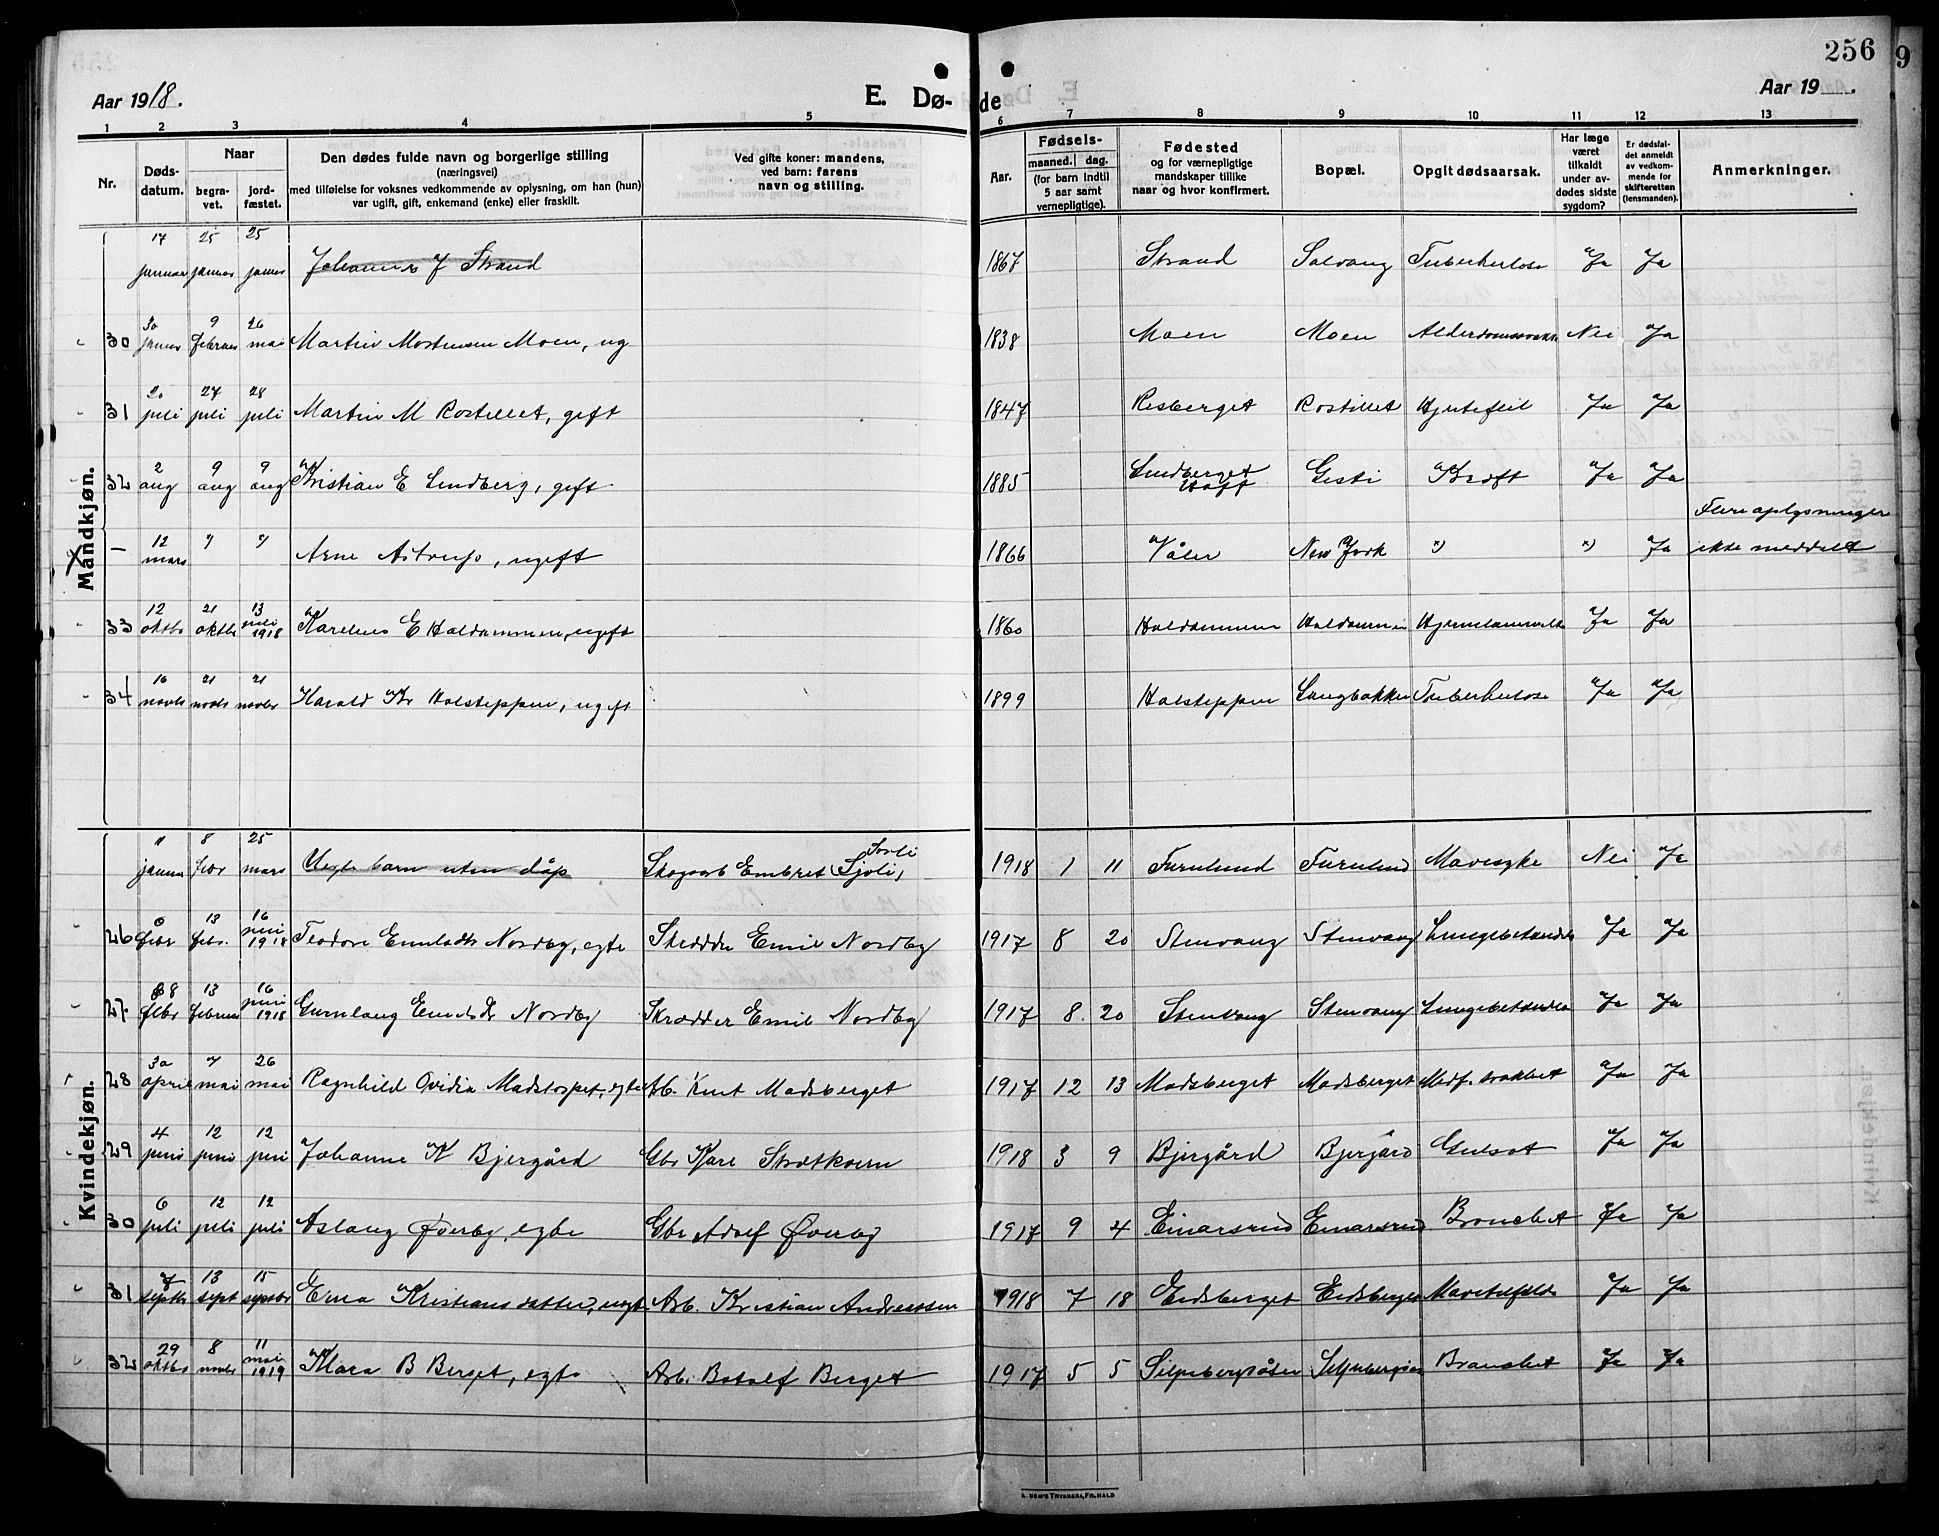 256
9
Aar 1918.
E. Dø-
de
Aar 19 .
1 2 3 4 5 6 7 8 9 10 11 12 13
Nr.
Døds-
datum.
Naar
begra-
vet.
jord-
fæstet.
Den dødes fulde navn og borgerlige stilling
(næringsvei)
med tilføielse for voksnes vedkommende av oplysning, om han (hun)
var ugift, gift, enkemand (enke) eller fraskilt.
Ved gifte koner: mandens,
ved barn: farens
navn og stilling.
Aar.
Fødsels-
maaned. dag.
(for barn indtil
5 aar samt
vernepligtige).
Fødested
og for værnepligtige
mandskaper tillike
naar og hvor konfirmert.
Bopæl.
Opgit dødsaarsak.
Har læge
været
tilkaldt
under av-
dødes sidste
sygdom?
Er dødsfal-
det anmeldt
av vedkom-
mende for
skifteretten
(lensmanden).
Anmerkninger.
Mandkjøn.
17 25 25
januar januar januar Johannes J Strand 1867 Strand Solvang Tuberkulose Ja Ja
30 9 26
30 januar februar mai Martin Mortensen Moen, ug 1838 Moen Moen Nei Ja
20 27 28
31 juli juli juli Martin M Rostillet, gift 1847 Risberget Rostillet Hjertefeil Ja Ja
2 9 9
32 aug aug aug Kristian E Lindberg, gift 1885 Lindberget Hoff Gesti Kræft Ja Ja
Flere oplysninger
12 " "
— mars Arne Astrup, ugift 1866 Våler New York Ja ikke meddelt
12 21 13
33 oktbr oktbr juli 1918 Karelius E Haldammen, ugift 1860 Haldammen Haldammen Ja Ja
16 21 21
34 novbr novbr novbr Harald Kr Halsteppen, ugift 1899 Halsteppen Langbakken Tuberkulose Ja Ja
Kvindekjøn.
11 8 25
januar febr mars Uegte barn uten dåp Skogsarb Embret Sjøli, 1918 1 11 Furulund Furulund Mavesyke Nei Ja
13 16
26 febr febr. juni 1918 Teodora Emilsdtr Nordby, egte Skrædder Emil Nordby 1917 8 20 Stenvang Stenvang Lungebetændelse Ja Ja
8 13 16
27 febr februar juni 1918 Gunlaug Emilsdtr Nordby Skrædder Emil Nordby 1917 8 20 Stenvang Stenvang Lungebetændelse Ja Ja
30 7 26
28 april mai mai Ragnhild Ovidia Madstorpet, egte Arb. Knut Madsberget 1917 12 13 Madsberget Madsberget Medf. svakhet Ja Ja
4 12 12
29 juni juni juni Johanne K Bjergård Gbr Kare 1918 3 9 Bjergård Bjergård Gulsot Ja Ja
6 12 12
30 juli juli juli Aslaug Øverby, egte Gbr Adolf Øverby 1917 9 4 Einarsrud Einarsrud Bronchit Ja Ja
7 13 15
31 septbr sept septbr Erna Kristiansdatter, uegt Arb. Kristian Andreassen 1918 7 18 Eidsberget Eidsberget Ja Ja
29 8 11
32 oktbr novbr mai 1919 Klara B Berget, egte Arb. Botolf Berget 1917 5 5 Silpebergsåsen Bronchit Ja Ja